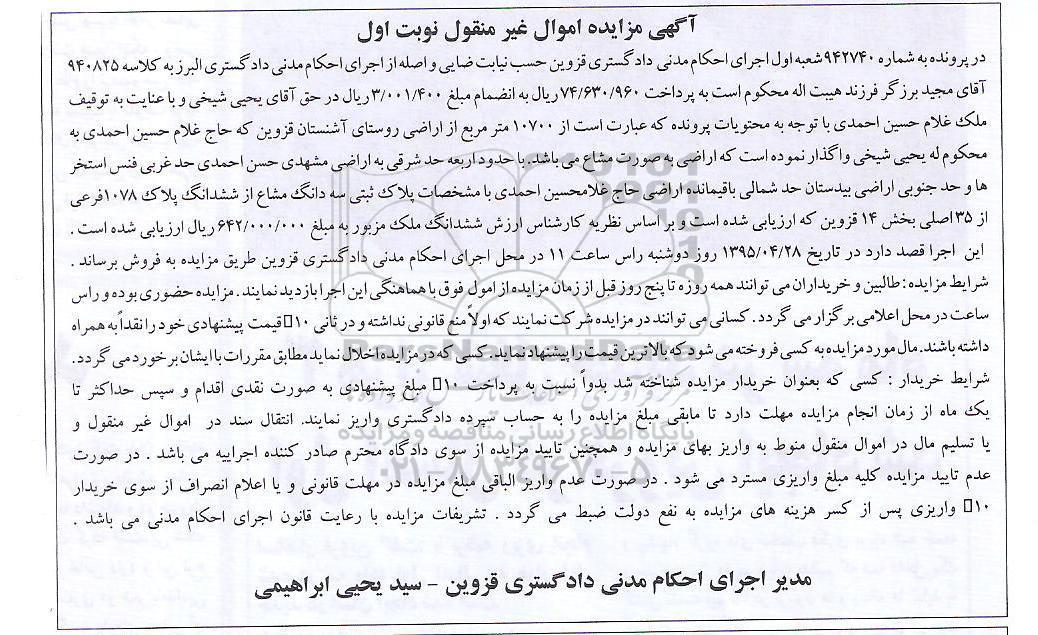 آگهی مزایده اموال غیر منقول نوبت اول
در پرونده به شماره ۹۴۲۷۴۰ شعبه اول اجرای احکام مدنی دادگستری قزوین حسب نیابت ضایی و اصله از اجرای احکام مدنی دادگستری البرز به کلاسه ۹۴۰۸۲۵
آقای مجید برزگر فرزند هیبت اله محکوم است به پرداخت ۷۴/۶۳۰/۹۶۰ ریال به انضمام مبلغ ۳/۰۰۱/۴۰۰ ریال در حق آقای یحیی شیخی و با عنایت به توقیف
ملک غلام حسین احمدی با توجه به محتویات پرونده که عبارت است از ۱۰۷۰۰ متر مربع از اراضی روستای آشنستان قزوین که حاج غلام حسین احمدی به
محکوم له یحیی شیخی واگذار نموده است که اراضی به صورت مشاع می باشد. با حدود اربعه حد شرقی به اراضی مشهدی حسن احمدی حد غربی فنس استخر
ها و حد جنوبی اراضی بیدستان حد شمالی باقیمانده اراضی حاج غلامحسین احمدی با مشخصات پلاک ثبتی سه دانگ مشاع از ششدانگ پلاک ۱۰۷۸ فرعی
از ۳۵ اصلی بخش ۱۴ قزوین که ارزیابی شده است و بر اساس نظریه کارشناس ارزش ششدانگ ملک مزبور به مبلغ ۶۴۲/۰۰۰/۰۰۰ ریال ارزیابی شده است .
این اجرا قصد دارد در تاریخ ۱۳۹۵/۰۴/۲۸ روز دوشنبه راس ساعت ۱۱ در محل اجرای احکام مدنی دادگستری قزوین طریق مزایده به فروش برساند .
شرایط مزایده : طالبین و خریداران می توانند همه روزه تا پنج روز قبل از زمان مزایده از امول فوق با هماهنگی این اجرا بازدید نمایند . مزایده حضوری بوده و راس
ساعت در محل اعلامی برگزار می گردد . کسانی می توانند در مزایده شرکت نمایند که اولاً منع قانونی نداشته و در ثانی ۱۰ قیمت پیشنهادی خود را نقداً به همراه
داشته باشند. مال مورد مزایده به کسی فروخته می شود که بالاترین قیمت را پیشنهاد نماید. کسی که در مزایده اخلال نماید مطابق مقررات با ایشان برخورد می گردد .
شرایط خریدار : کسی که بعنوان خریدار مزایده شناخته شد بدواً نسبت به پرداخت ۱۰ مبلغ پیشنهادی به صورت نقدی اقدام و سپس حداکثر تا
یک ماه از زمان انجام مزایده مهلت دارد تا مابقی مبلغ مزایده را به حساب سپرده دادگستری واریز نمایند. انتقال سند در اموال غیر منقول و
یا تسلیم مال در اموال منقول منوط به واریز بهای مزایده و همچنین تایید مزایده از سوی دادگاه محترم صادر کننده اجراییه می باشد . در صورت
عدم تایید مزایده کلیه مبلغ واریزی مسترد می شود . در صورت عدم واریز الباقی مبلغ مزایده در مهلت قانونی و یا اعلام انصراف از سوی خریدار
۱۰ واریزی پس از کسر هزینه های مزایده به نفع دولت ضبط می گردد . تشریفات مزایده با رعایت قانون اجرای احکام مدنی می باشد .
مدیر اجرای احکام مدنی دادگستری قزوین - سید یحیی ابراهیمی
ParsNamadData
پایگاه اطلاع رسانی مناقصه و مزایده
۰۲۱-۸۸۳۴۹۶۷۰-۵